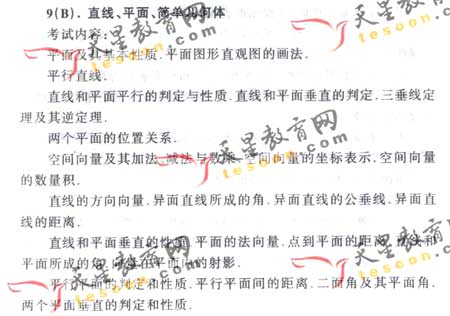 9(B). 直线、平面、简单几何体
考试内容:
平面及其基本性质.平面图形直观图的画法.
平行直线.
直线和平面平行的判定与性质.直线和平面垂直的判定.三垂线定
理及其逆定理.
两个平面的位置关系.
空间向量及其加法、减法与数乘.空间向量的坐标表示.空间向量
的数量积.
直线的方向向量.异面直线所成的角.异面直线的公垂线.异面直
线的距离.
直线和平面垂直的性质.平面的法向量.点到平面的距离.直线和
平面所成的角.向量在平面内的射影.
平行平面的判定和性质.平行平面间的距离.二面角及其平面角.
两个平面垂直的判定和性质.
天星教育网
tesoon.com
天星教育网
tesoon.com
天星教育网
tesoon.com
天星教育网
tesoon.com
天星教育网
tesoon.com